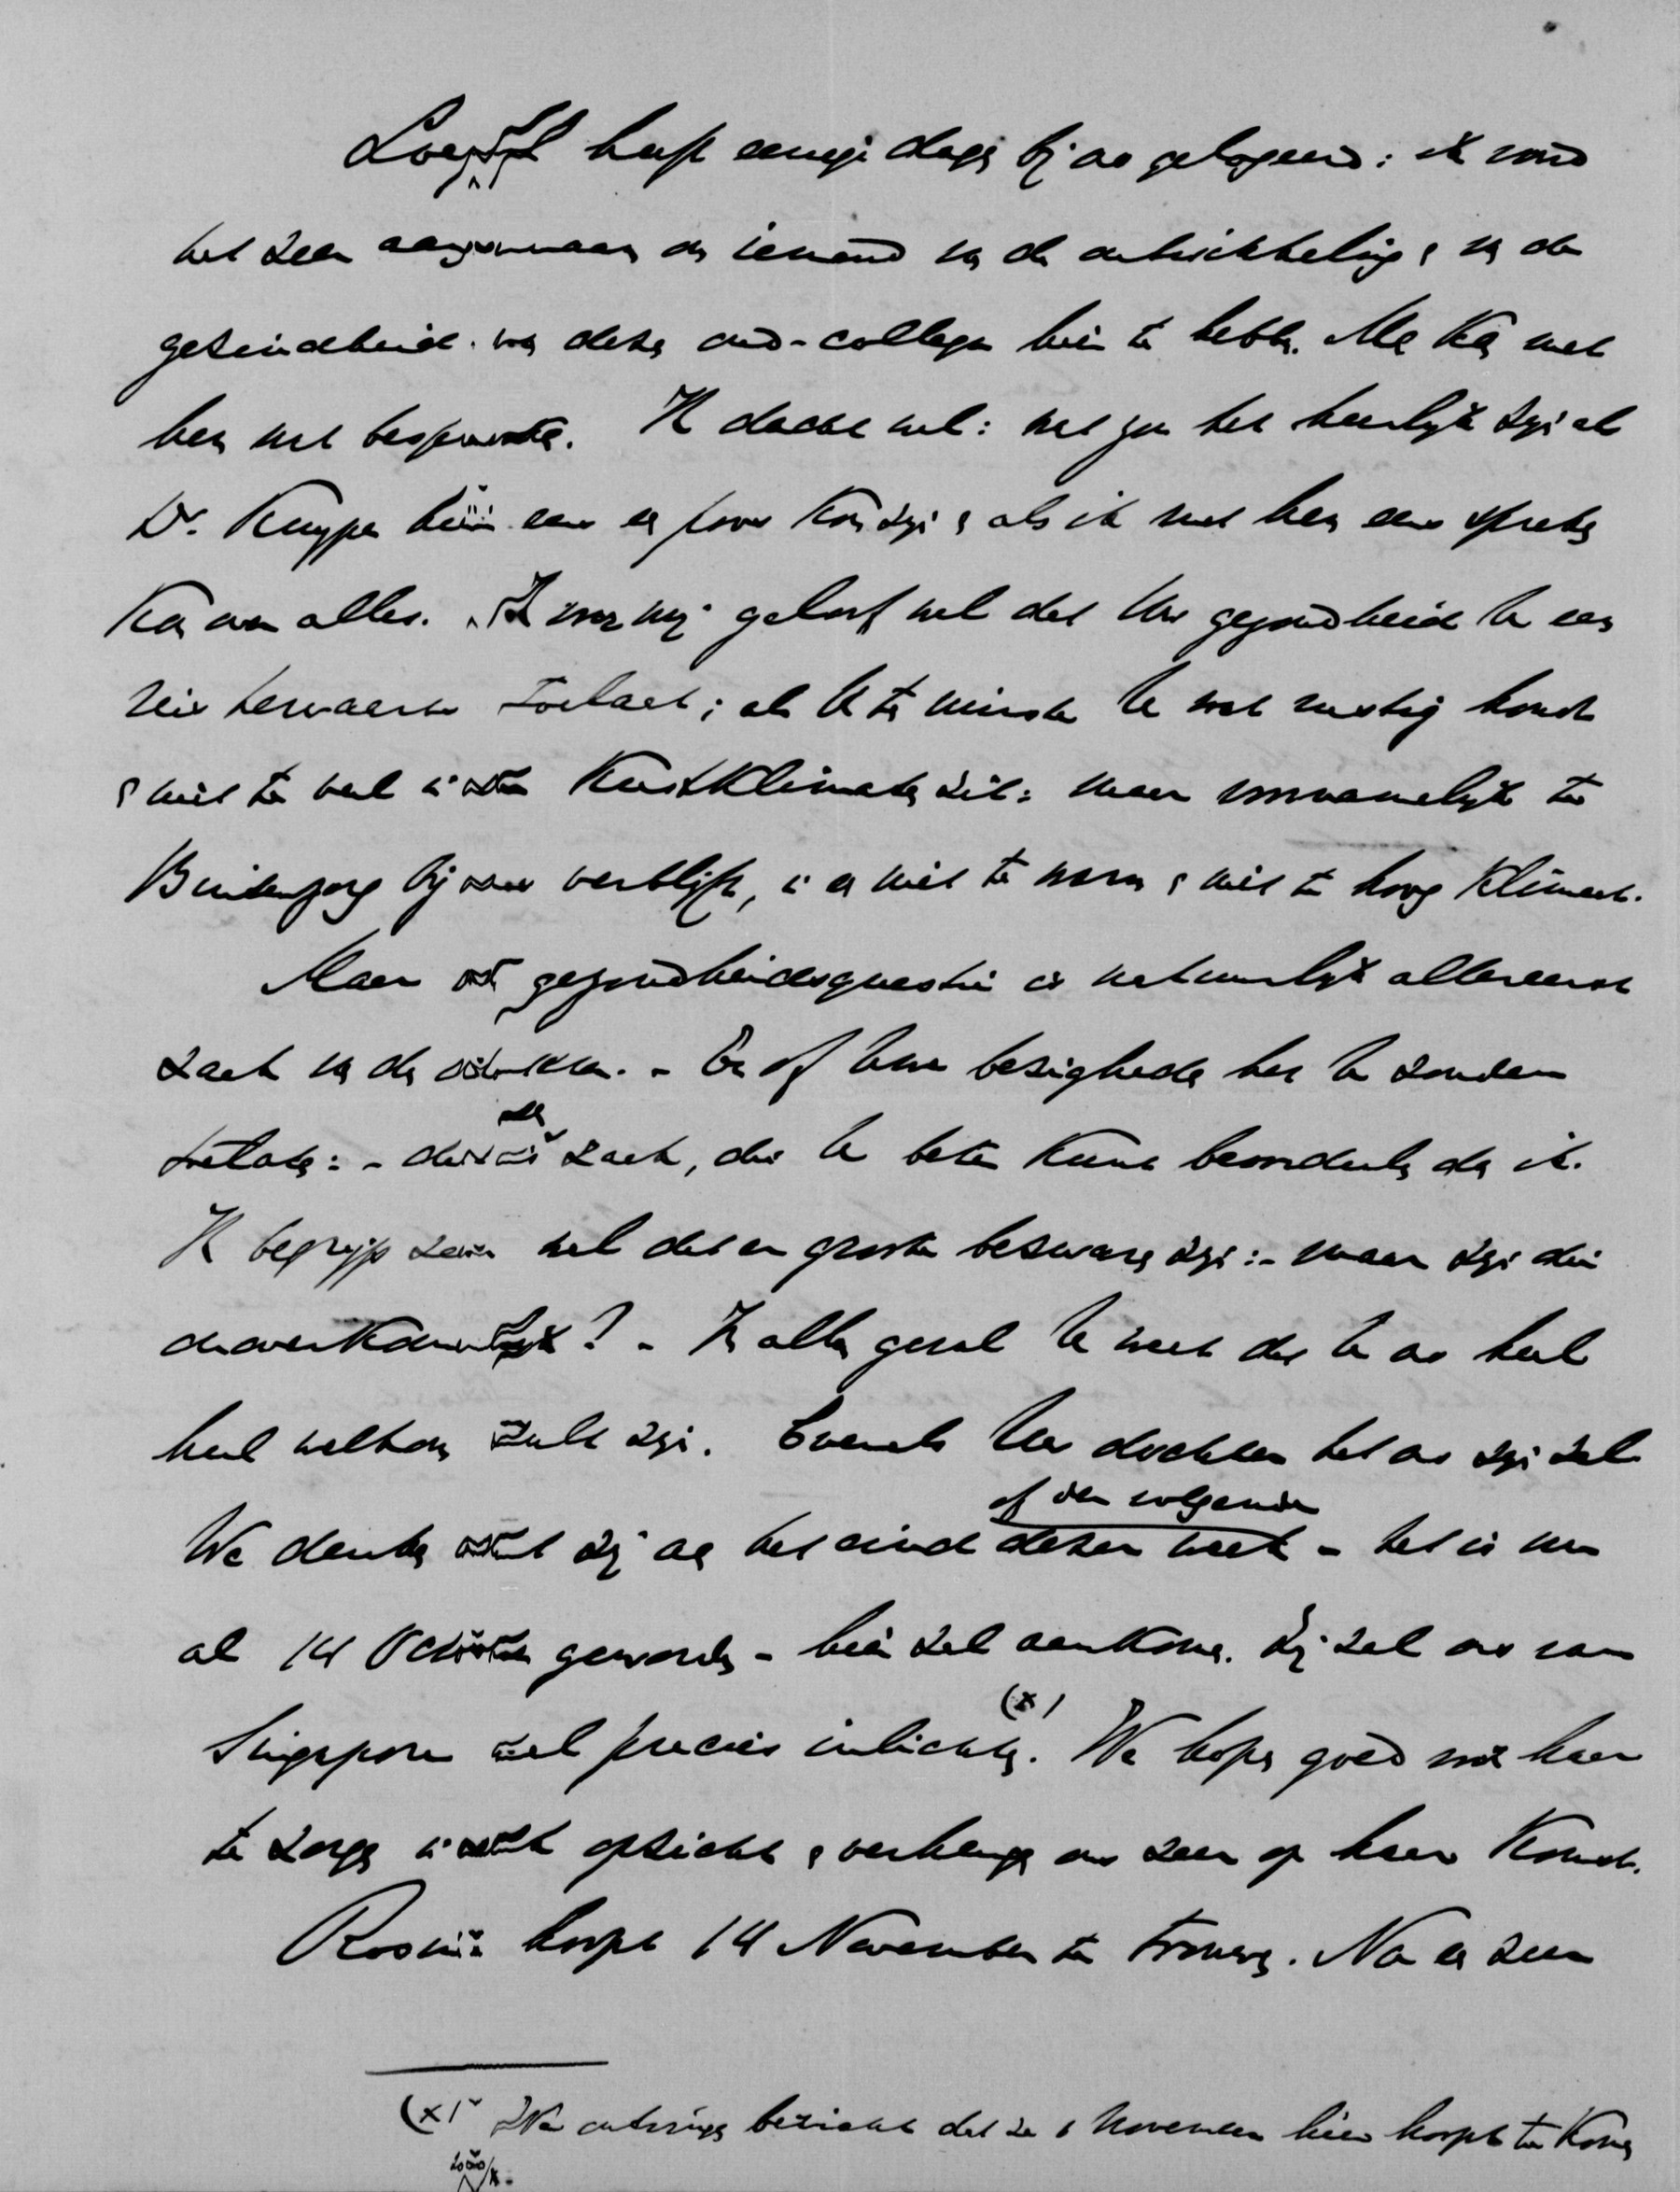 heeft eenige dagen bij ons gelogeerd: ik vond
het zeer aangenaam om iemand van de ontwikkeling & van de
gezindheid van dezen oud-collega hier te hebben. Men kan met
hem wel bespreken. Ik dacht wel: wat zou het heerlijk zijn als
Dr. Kuyper hier eens een poos kon zijn & als ik met hem eens spreken
kan over alles. Ik voor mij geloof wel dat Uw gezondheid U een
reis herwaarts toelaat; als U ten minste U wat rustig houdt
& niet te veel in kustklimaten zit: maar voornamelijk te
Buitenzorg bij ons verblijft, in een niet te warm & niet te hoog klimaat.
Maar de gezondheidsquestie is natuurlijk allereerst
zaak van den dokter. - En of Uwe bezigheden het U zouden
toelaten: - dat is een zaak, die U beter kunt beoordeelen dan ik.
Ik begrijp zeer wel dat er groote bezwaren zijn: - maar zijn die
onoverkomelijk? - In allen geval U weet dat U ons heel
heel welkom zult zijn. Evenals Uw dochter het ons zijn zal.
of der volgende
We denken dat zij aan het eind dezer week - het is nu
al 14 October geworden - hier zal aankomen. Zij zal ons van
(x)
Singapore wel precies inlichten. We hopen goed voor haar
te zorgen in elk opzicht & verheugen ons zeer op haar komst.
hoopt 14 November te trouwen. Na een zeer
(x) We ontvingen bericht dat ze 6 November hier hoopt te komen